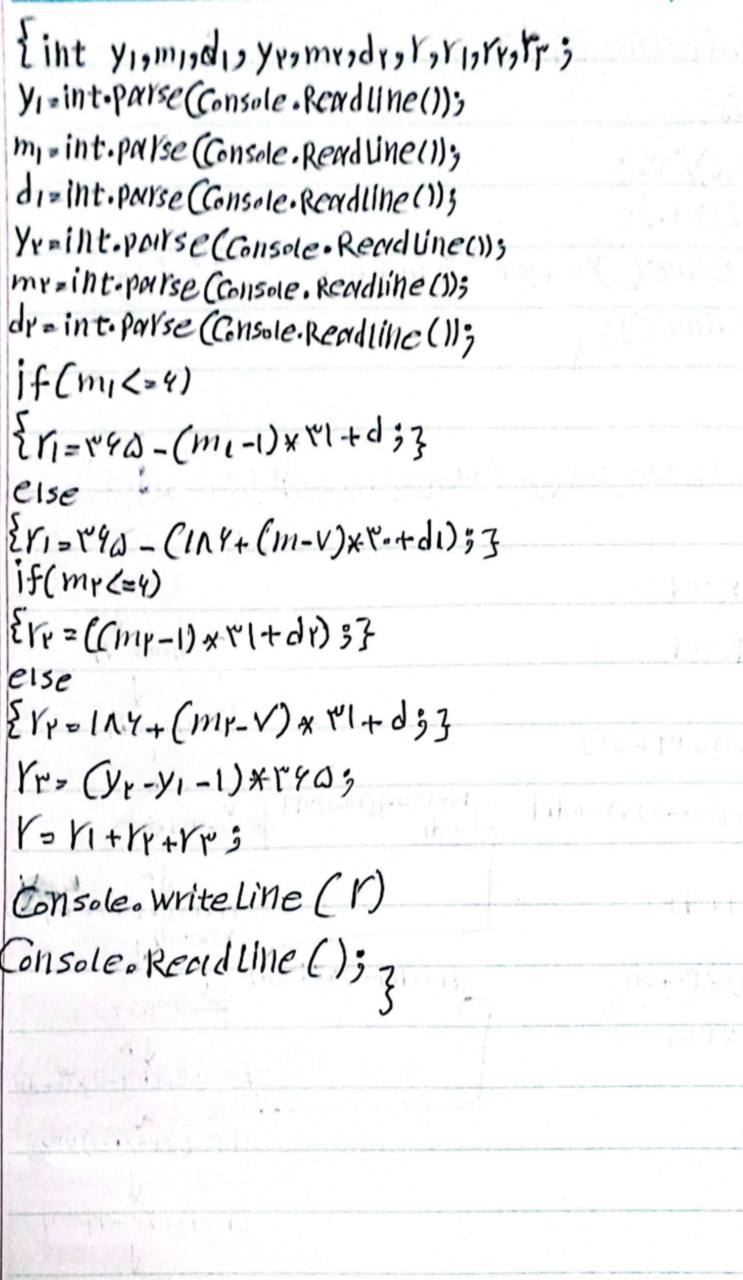 {int y۱,m۱,d۱,y۲,m۲,d۲,r,r۱,r۲,r۳;
y۱=int.parse(Console.Readline());
m۱=int.parse(Console.ReadLine());
d۱=int.parse(Console.Readline());
y۲=int.parse(Console.ReadLine());
m۲=int.parse(Console.Readline());
d۲=int.parse(Console.Readline());
if(m۱<=۶)
{r۱=۳۶۵-(m۱-۱)*۳۱+d;}
else
{r۱=۳۶۵-(۱۸۶+(m-۷)*۳۰+d۱);}
if(m۲<=۶)
{r۲=((m۲-۱)*۳۱+d۲);}
else
{r۲=۱۸۶+(m۲-۷)*۳۱+d;}
r۳=(y۲-y۱-۱)*۳۶۵;
r=r۱+r۲+r۳;
Console.writeLine(r)
Console.ReadLine();}